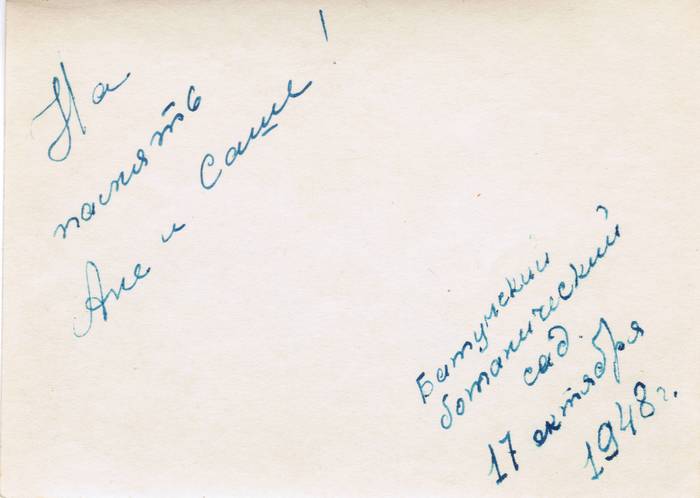 На
память
Ане и Саше!
Батумский
ботанический
сад.
17 октября
1948 г.